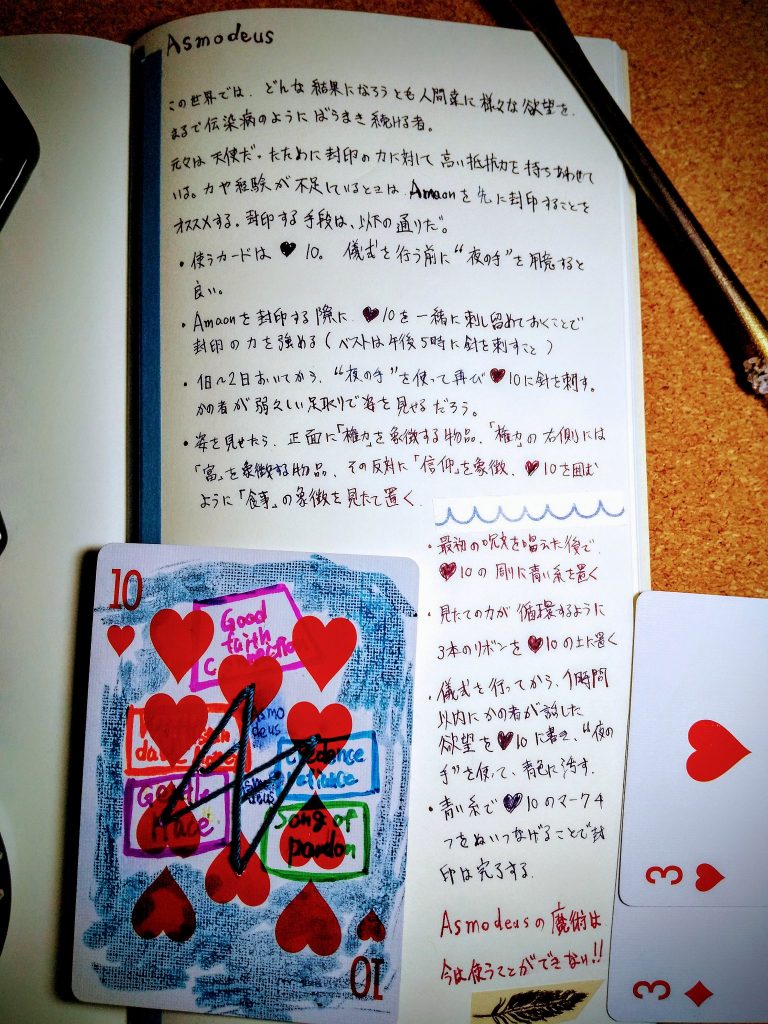 Asmodeus
この世界では、どんな結果になろうとも人間達に様々な欲望を、
まるで伝染病のようにばらまき続ける者。
元々は天使だったために封印の力に対して高い抵抗力を持ちあわせて
いる。力や経験が不足しているときは Amaonを先に封印することを
オススメする。封印する手段は、以下の通りだ。
・使うカードは ♥10。 儀式を行う前に"夜の手"を用意すると
良い。
・Amaonを封印する際に、♥10を一緒に刺し留めておくことで
封印の力を強める(ベストは午後5時に針を刺すこと)
・1日~2日おいてから、"夜の手"を使って再び♥10に針を刺す。
かの者が弱々しい足取りで姿を見せるだろう。
・姿を見せたら、正面に「権力」を象徴する物品、「権力」の右側には
「富」を象徴する物品、その反対に「信仰」を象徴、♥10を囲む
ように「食事」の象徴を見たて置く。
・最初の呪文を唱えた後で、
♥10の 側に青い糸を置く
・見たての力が循環するように
3本のリボンを♥10の上に置く
・儀式を行ってから、1時間
以内にかの者が話した
欲望を♥10に書き、"夜の
手"を使って、青色に汚す。
・青い糸で♥10のマーク4
つをぬいつなげることで封
印は完了する。
Asmodeusの魔術は
今は使うことができない!!
10
Good
faith
Asmo
deus
Gentle
Song of
pardon
10
3
3